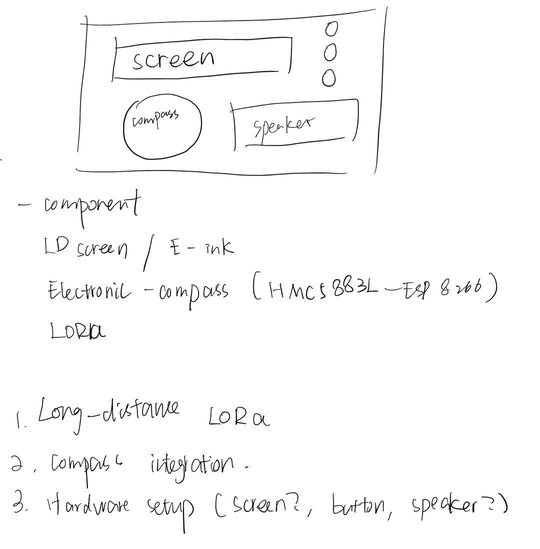 screen
compass
speaker
- component
LD screen / E-ink
Electronic - compass (HMC5883L - ESP 8266)
LORa
1. Long-distance LORa
2. compass integration.
3. Hardware setup (screen?, button, speaker?)